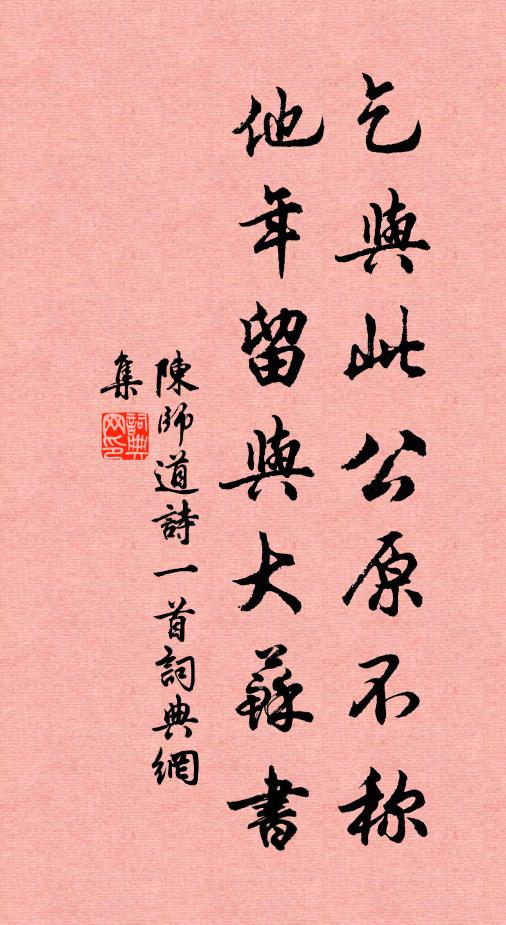 乞與此公原不称
他年留與大蘇書
陳師道詩一首詞典網
集
詞典
网印